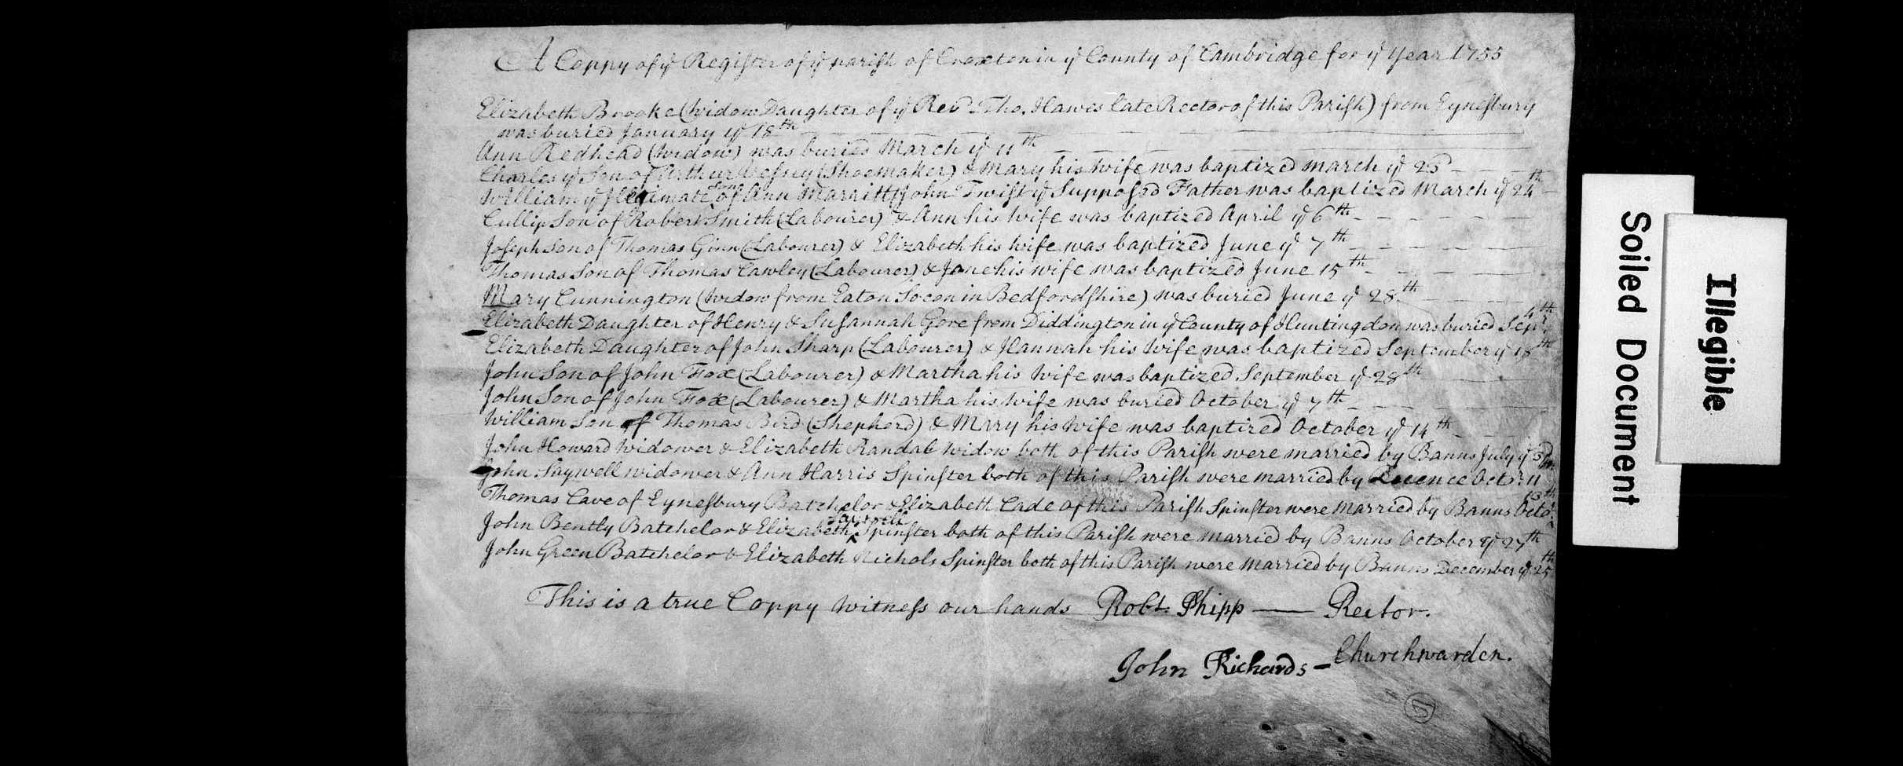 A Coppy of yͤ Register of yͤ parish of Croxton in yͤ County of Cambridge for yͤ Year 1755
Elizabeth Brooke (widow Daughter of yͤ Revᵈ Tho. Hawes late Rector of this Parish) from Eynesbury
was buried January yͤ 18th
Ann Redhead (widow) was buried March yͤ 11th
Charles yͤ Son of Arthur (Shoemaker) & Mary his Wife was baptized march yͤ 23
William yͤ Illegimate Son of Ann Marritt John Twist yͤ Supposed Father was baptized March yͤ 24th
Cullip Son of Robert Smith (Labourer) & Ann his wife was baptized April yͤ 6th
Joseph Son of Thomas Ginn (Labourer) & Elizabeth his wife was baptized June yͤ 7th
Thomas Son of Thomas Cawley (Labourer) & Jane his wife was baptized June 15th
Mary Cunnington (widow from Eaton Socon in Bedfordshire) was buried June yͤ 28th
Elizabeth Daughter of Henry & Susannah Gore from Diddington in yͤ County of Huntingdon was buried Sepr 4th
Elizabeth Daughter of John Sharp (Labourer) & Hannah his Wife was baptized September yͤ 18th
John Son of John Fox (Labourer) & Martha his Wife was baptized September yͤ 28th
John Son of John Fox (Labourer) & Martha his wife was buried October yͤ 7th
William Son of Thomas Bird (Shepherd) & Mary his Wife was baptized October yͤ 14th
John Howard widower & Elizabeth Randal widow both of this Parish were married by Banns July yͤ
John Saywell widower & Ann Harris Spinster both of this Parish were married by Licence Octor 11
Thomas Cave of Eynesbury Batchelor & Elizabeth Cade of this Parish Spinster were married by Banns Octor 13th
John Bently Batchelor & Elizabeth Spinster both of this Parish were married by Banns October yͤ 27th
John Green Batchelor & Elizabeth Nichols Spinster both of this Parish were married by Banns December yͤ 25th
This is a true Coppy Witness our hands Robt. Phipp — Rector.
John Richards – Churchwarden.
Soiled Document
Illegible